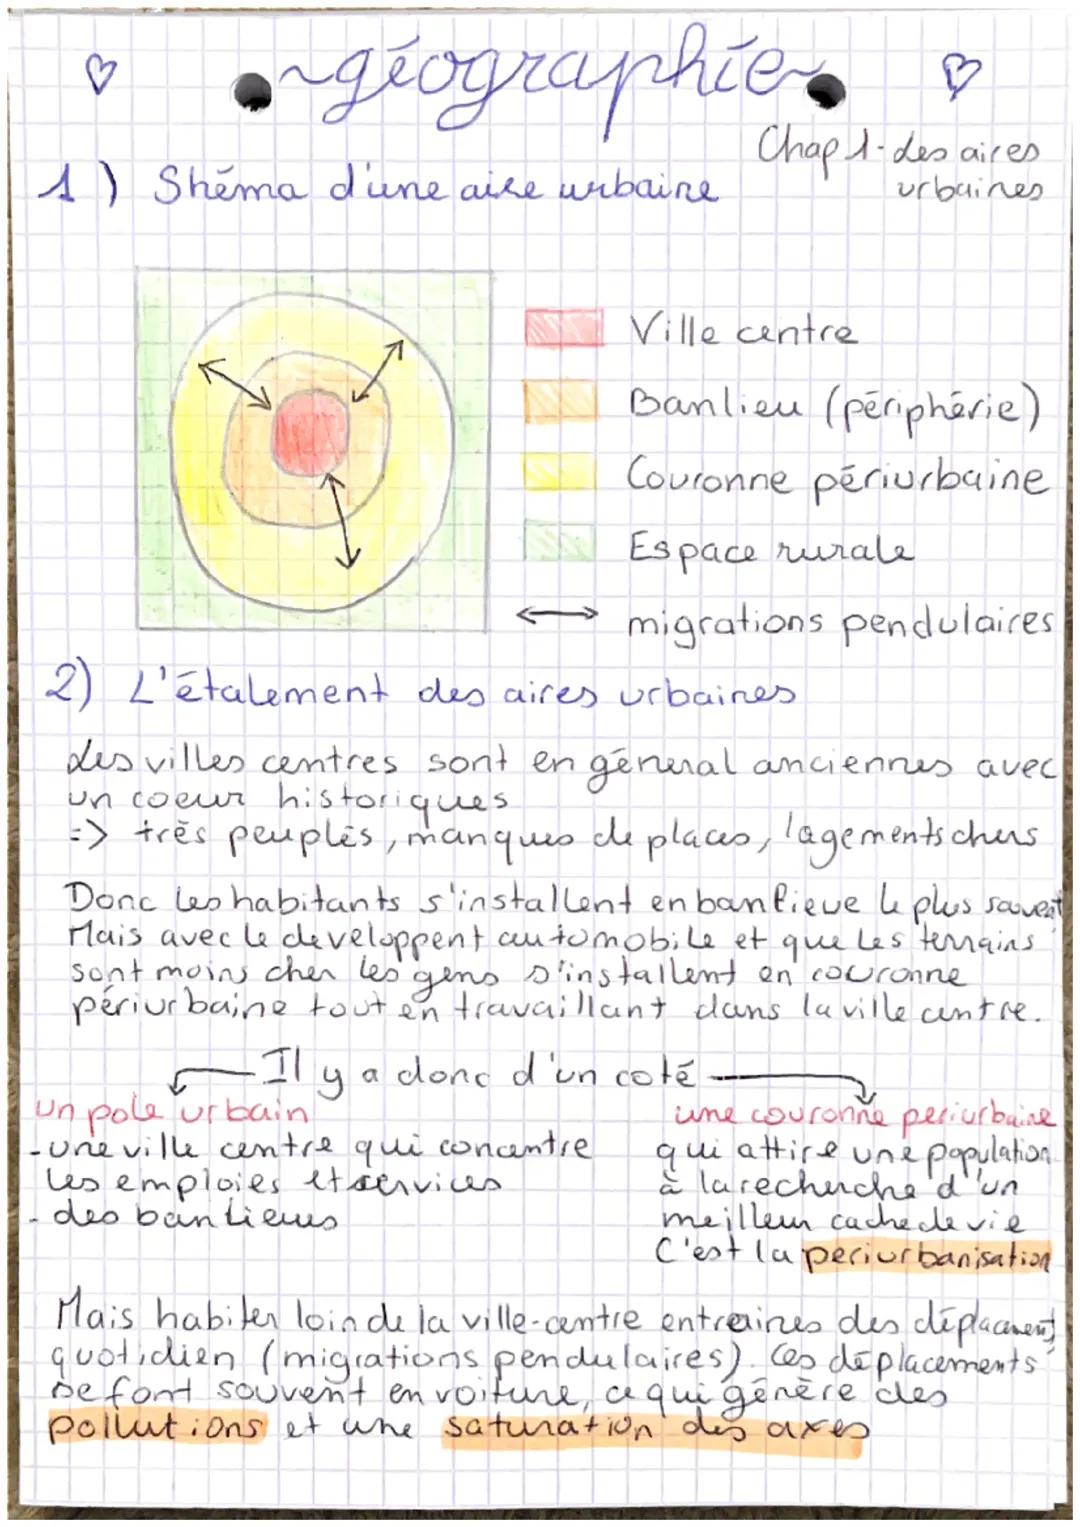 ~géographie~
Chap 1 - des aires
urbaines
1) Shéma d'une aire urbaine
Ville centre
Banlieu (périphérie)
Couronne périurbaine
Espace rurale
migrations pendulaires
2) L'étalement des aires urbaines
Les villes centres sont en général anciennes avec
un coeur historiques
=> très peuplés, manques de places, lagements chers
Donc les habitants s'installent en banlieue le plus souvent
Mais avec le developpent automobile et que les terrains
sont moins cher les gens s'installent en couronne
périurbaine tout en travaillant dans la ville centre.
Il y a donc d'un coté
un pole urbain
- une ville centre qui concentre
les emploies et services
- des banlieues
une couronne periurbaine
qui attire une population
à la recherche d'un
meilleur cache de vie
C'est la periurbanisation
Mais habiter loin de la ville-centre entraines des déplacements
quotidien (migrations pendulaires). Ces déplacements
se font souvent en voiture, ce qui génère des
pollutions et une saturation des axes